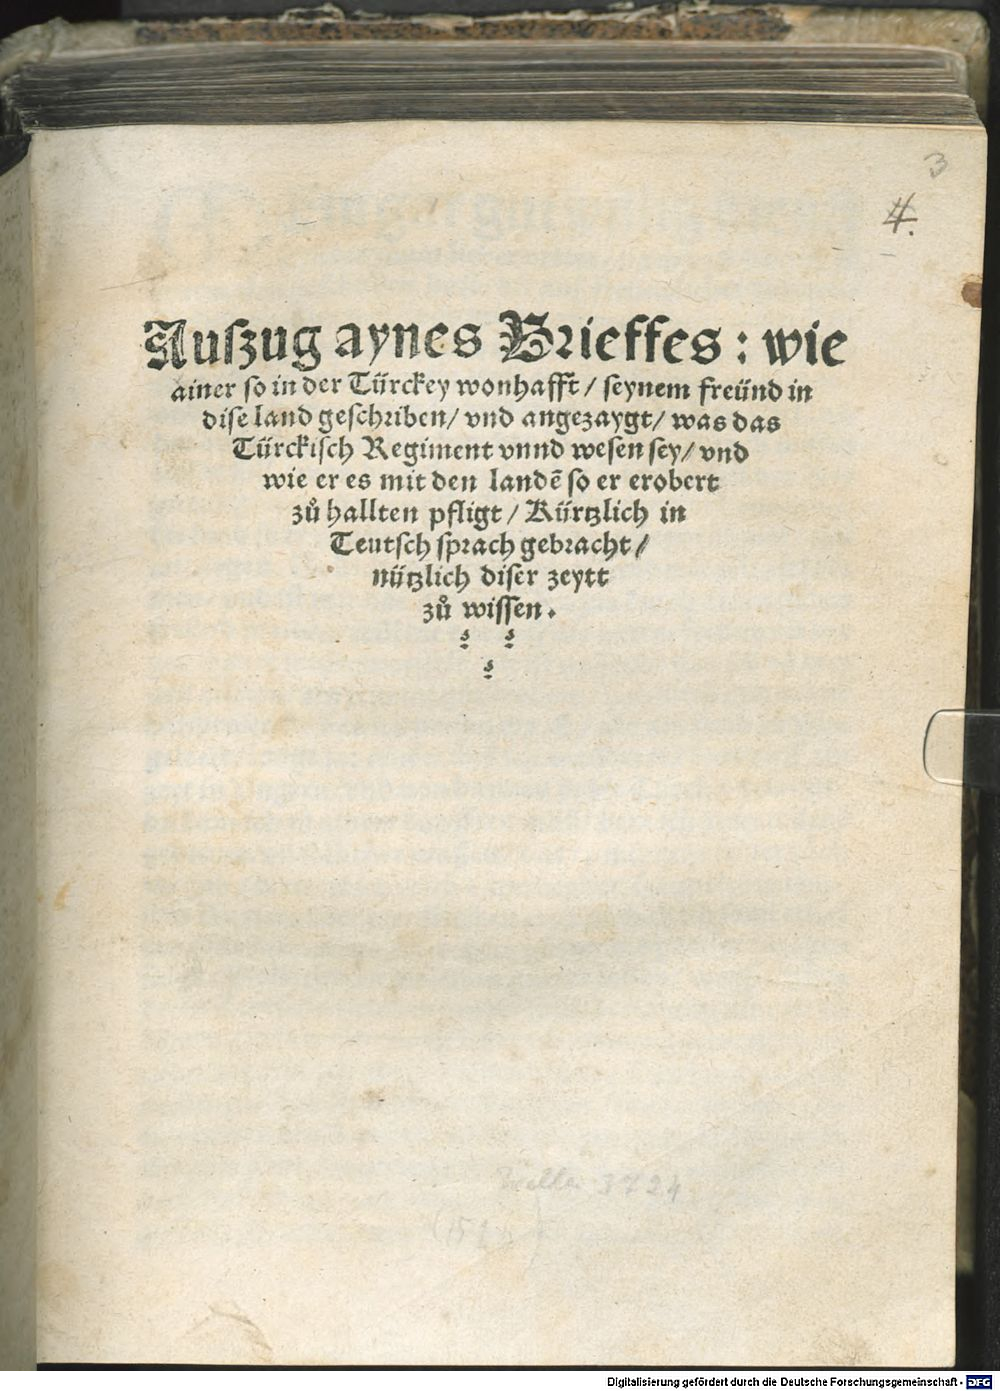 3
4.
Auſzug aynes Brieffes: wie
ainer ſo in der Türckey wonhafft/ ſeynem freünd in
diſe land geſchriben/ vnd angezaygt/ was das
Türckiſch Regiment vnnd weſen ſey/ vnd
wie er es mit den landē ſo er erobert
zů hallten pfligt/ Kürtzlich in
Teutſch ſprach gebracht/
nützlich diſer zeytt
zů wiſſen.
3724
Digitalisierung gefördert durch die Deutsche Forschungsgemeinschaft - DFG